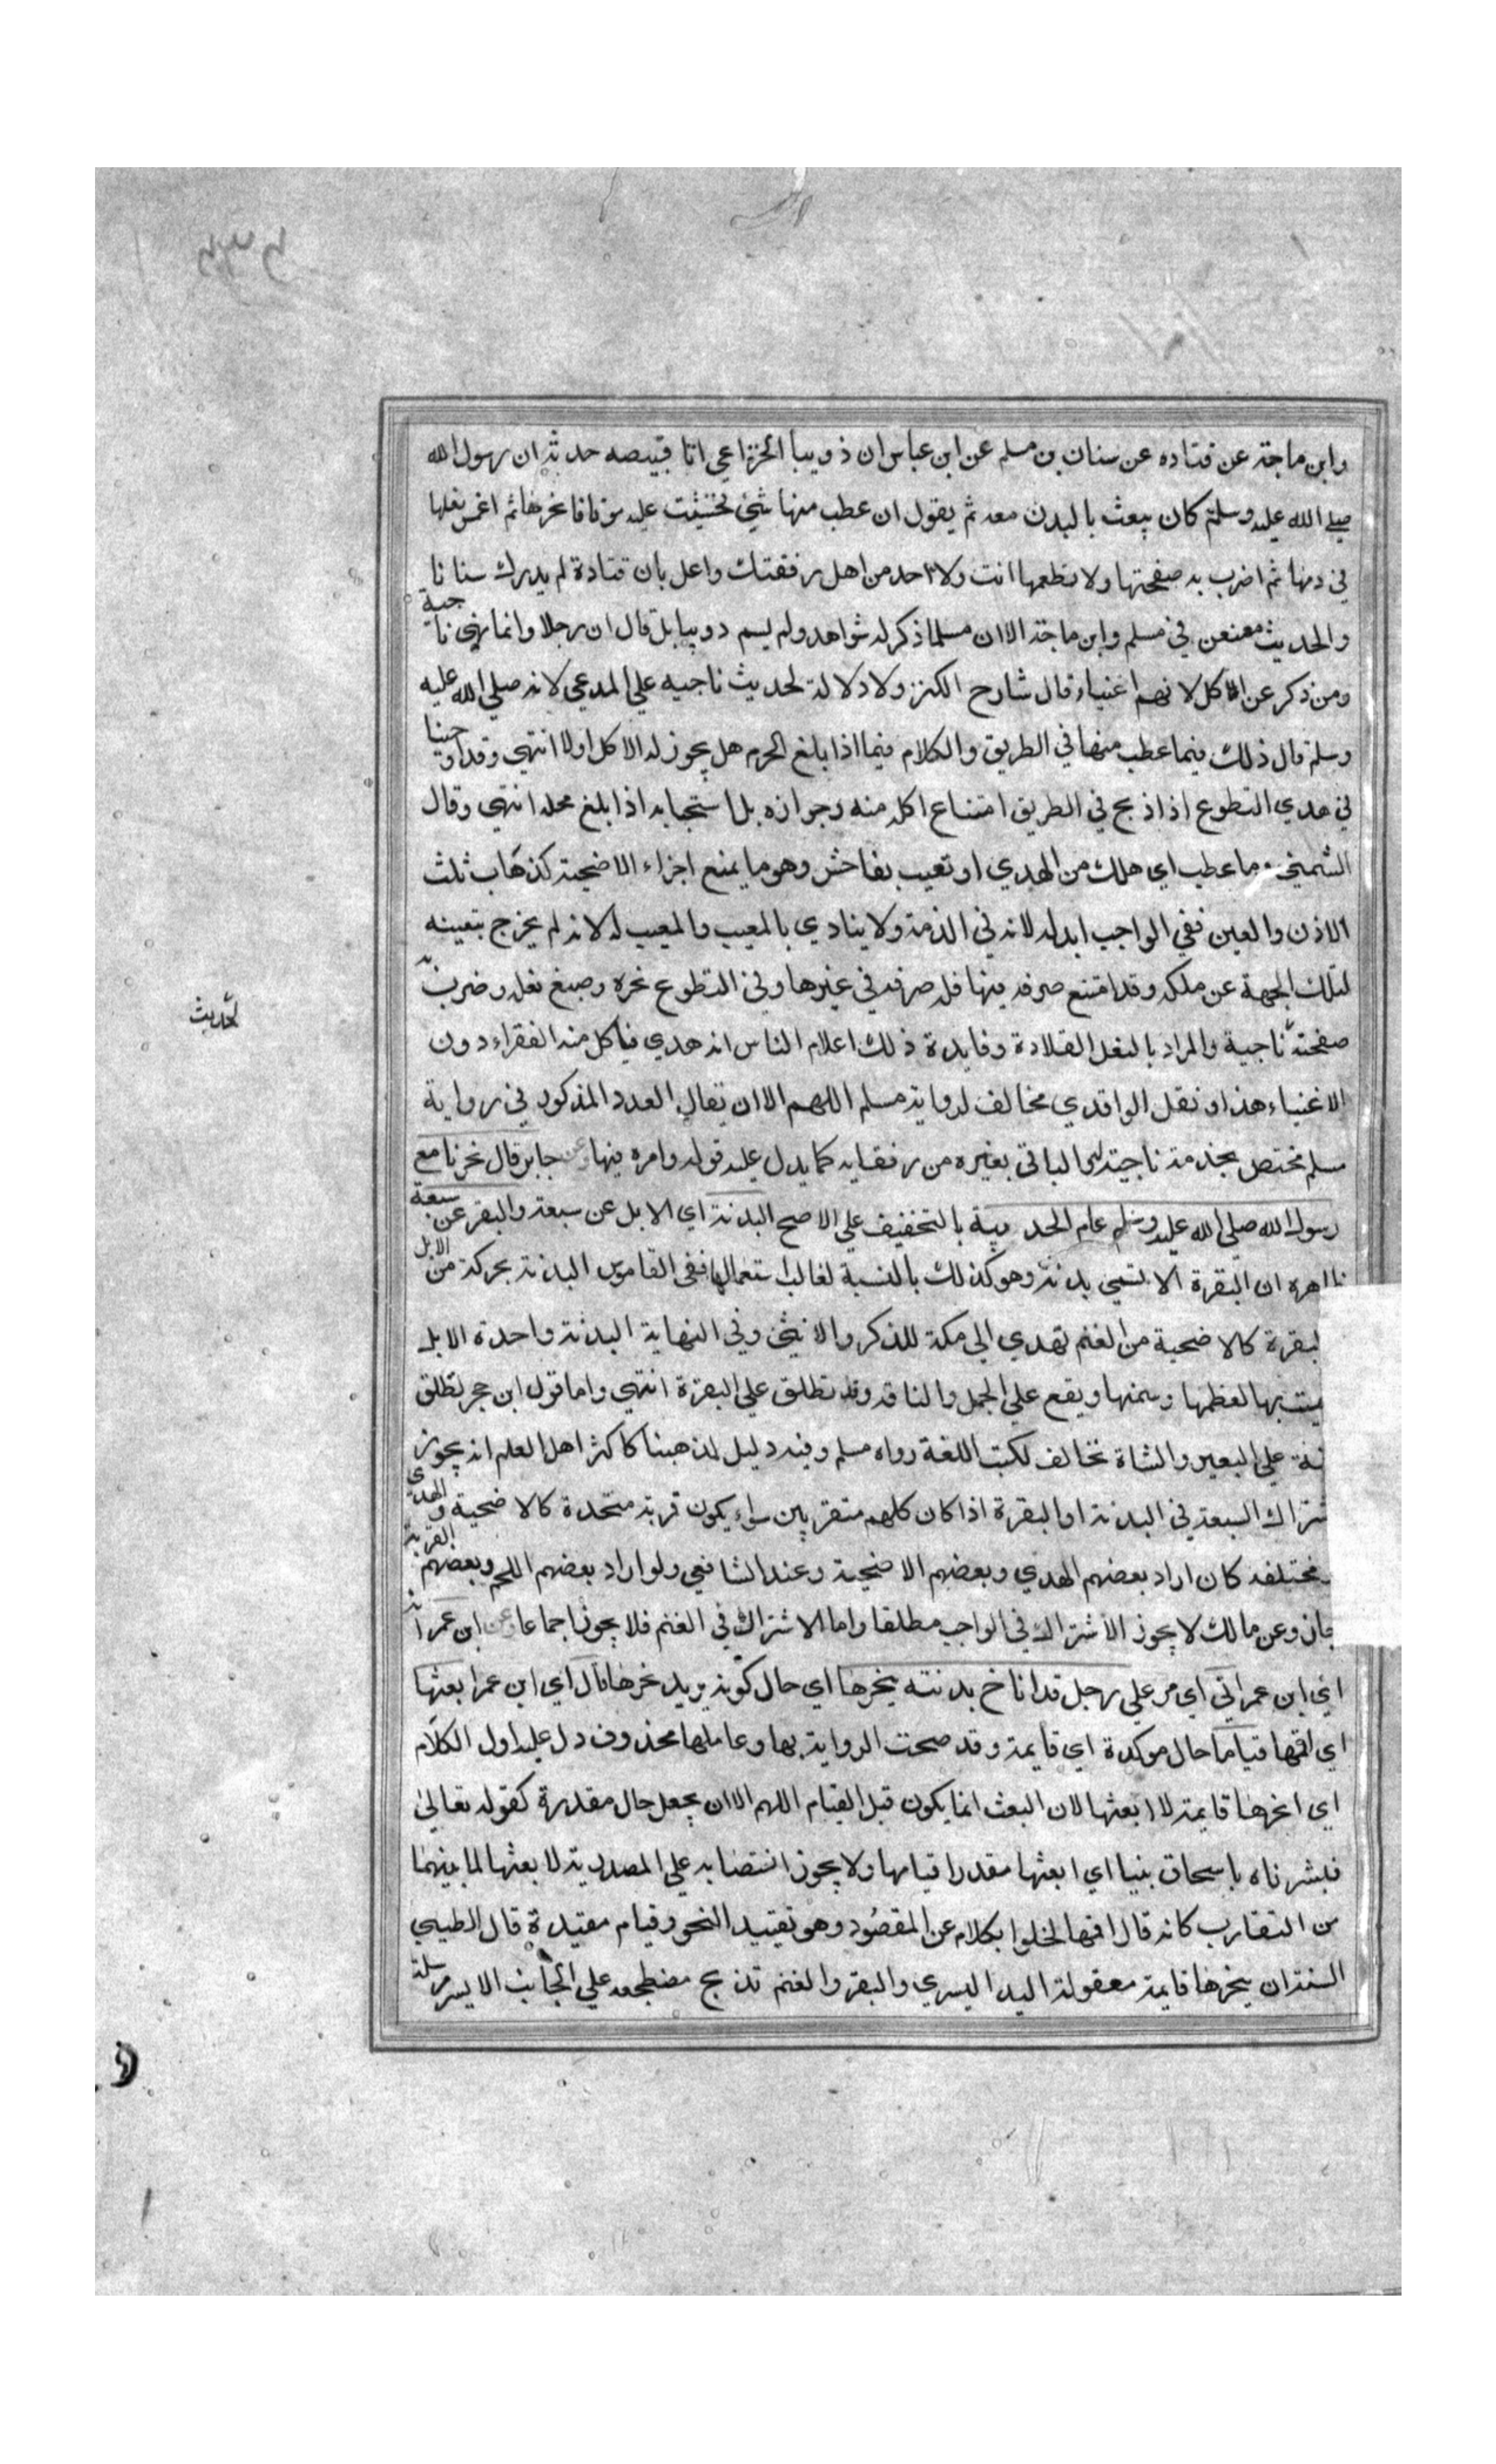 وابن ماجة عن قتاده عن سنان بن مسلم عن ابن عباس ان ذويبا الخزاعي ابا قبيصه حدثه ان رسول الله
صلي الله عليه وسلم كان يبعث بالبدن معه ثم يقول ان عطب منها شئ فخشيت عليه موتا فانحرها ثم اغمس نعلها
في دمها ثم اضرب به صفحتها ولا تطعمها انت ولا احد من اهل رفقتك واعل بان قتادة لم يدرك سنانا
والحديث معنعن في مسلم وابن ماجة الا ان مسلما ذكر له شواهد ولم يسم دويبا بل قال ان رجلا وانما نهي ناجية
ومن ذكر عن الاكل لانهم اغنياء قال شارح الكنز ولا دلالة لحديث ناجيه علي المدعي لانه صلي الله عليه
وسلم قال ذلك فيما عطب منها في الطريق والكلام فيما اذا بلغ الحرم هل يجوز له الاكل اولا انتهي وقد اوجبنا
في هدي التطوع اذا ذبح في الطريق امتناع اكله منه وجوازه بل استحبابه اذا بلغ محله انتهي وقال
الشمني وما عطب اي هلك من الهدي او تعيب بفاحش وهو ما يمنع اجزاء الاضحية كذهاب ثلث
الاذن والعين ففي الواجب ابدله لانه في الذمة ولا يتادي بالمعيب والمعيب له لانه لم يخرج بتعينه
لتلك الجهة عن ملكه وقد امتنع صرفه فيها فله صرفه في غيرها وفي التطوع نحره وصبغ نعله وضرب به
صفحته ناجية والمراد بالنعل القلادة وفايدة ذلك اعلام الناس انه هدي فياكل منه الفقراء دون
لحديث
الاغنياء هذا و نقل الواقدي مخالف لرواية مسلم اللهم الا ان يقال العدد المذكور في رواية
مسلم مختص بخدمة ناجية له والباقي بغيره من رفقايه كما يدل عليه قوله وامره فيها وعن جابر قال نحرنا مع
رسول الله صلي الله عليه وسلم عام الحديبية بالتخفيف علي الاصح البدنة اي الابل عن سبعة والبقر عن سبعة
ظاهره ان البقرة لا تسمي بدنة وهو كذلك بالنسبة لغالب استعمالها ففي القاموس البدنة بحركة من الابل
لبقرة كالاضحية من الغنم تهدي الي مكة للذكر والانثي وفي النهاية البدنة واحدة الابل
ميت بها لعظمها وسمنها ويقع علي الجمل والناقه وقد تطلق علي البقرة انتهي واما قول ابن حجر تطلق
نة علي البعير والشاة تخالف لكتب اللغة رواه مسلم وفيه دليل لمذهبنا كاكثر اهل العلم انه يجوز
شتراك السبعة في البدنة او البقرة اذا كان كلهم متقربين سواء يكون قربة متحدة كالاضحية والهدي
مختلفه كان اراد بعضهم الهدي وبعضهم الاضحية وعند الشافعي ولو اراد بعضهم اللحم وبعضهم القربة
جاز وعن مالك لا يجوز الاشتراك في الواجب مطلقا واما الاشتراك في الغنم فلا يجوز اجماعا وعن ابن عمر انه
اي ابن عمر اتي اي مر علي رجل قد اناخ بدنته ينحرها اي حال كونه يريد نحرها قال اي ابن عمر ابعثها
اي اقمها قياما حال موكدة اي قايمة وقد صحت الرواية بها وعاملها محذوف دل عليه اول الكلام
اي انحرها قايمة لا ابعثها لان البعث انما يكون قبل القيام اللهم الا ان يجعل حال مقدرة كقوله تعالي
فبشرناه باسحاق نبيا اي ابعثها مقدرا قيامها ولا يجوز انتصابه علي المصدرية لا بعثها لما بينهما
من التقارب كانه قال اقمها لخلوا بكلام عن المقصود وهو تقييد النحر وقيام مقيدة قال الطيبي
السنة ان ينحرها قايمة معقولة اليد اليسري والبقر والغنم تذبح مضطجعه علي الجانب الايسر مرسلة